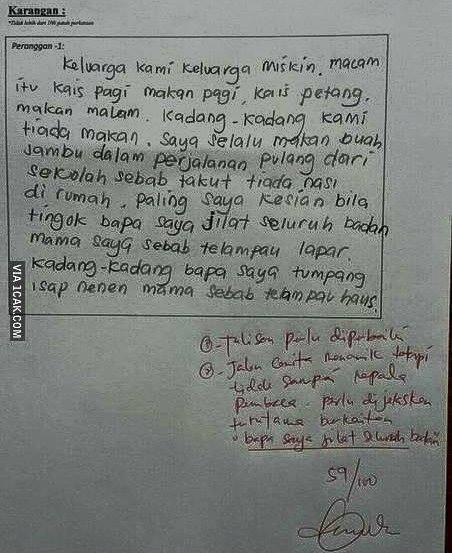 Karangan :
*Tidak lebih dari 100 patah perkataan
Peranggan -1:
Keluarga kami keluarga miskin. macam
itu kais pagi makan pagi, kais petang,
makan malam. Kadang-kadang kami
tiada makan. Saya selalu makan buah
jambu dalam perjalanan pulang dari
sekolah sebab takut tiada nasi
di rumah. Paling saya kesian bila
tingok bapa saya jilat seluruh badan
mama saya sebab telampau lapar.
Kadang-kadang bapa saya tumpang
isap nenen mama sebab telampau haus.
- Tulisan perlu diperbaiki
- Jalan cerita menarik tetapi
tidak sampai kepada
pembaca. perlu dijelaskan
terutama berkaitan
"bapa saya jilat seluruh badan
59/100
VIA 1CAK.COM